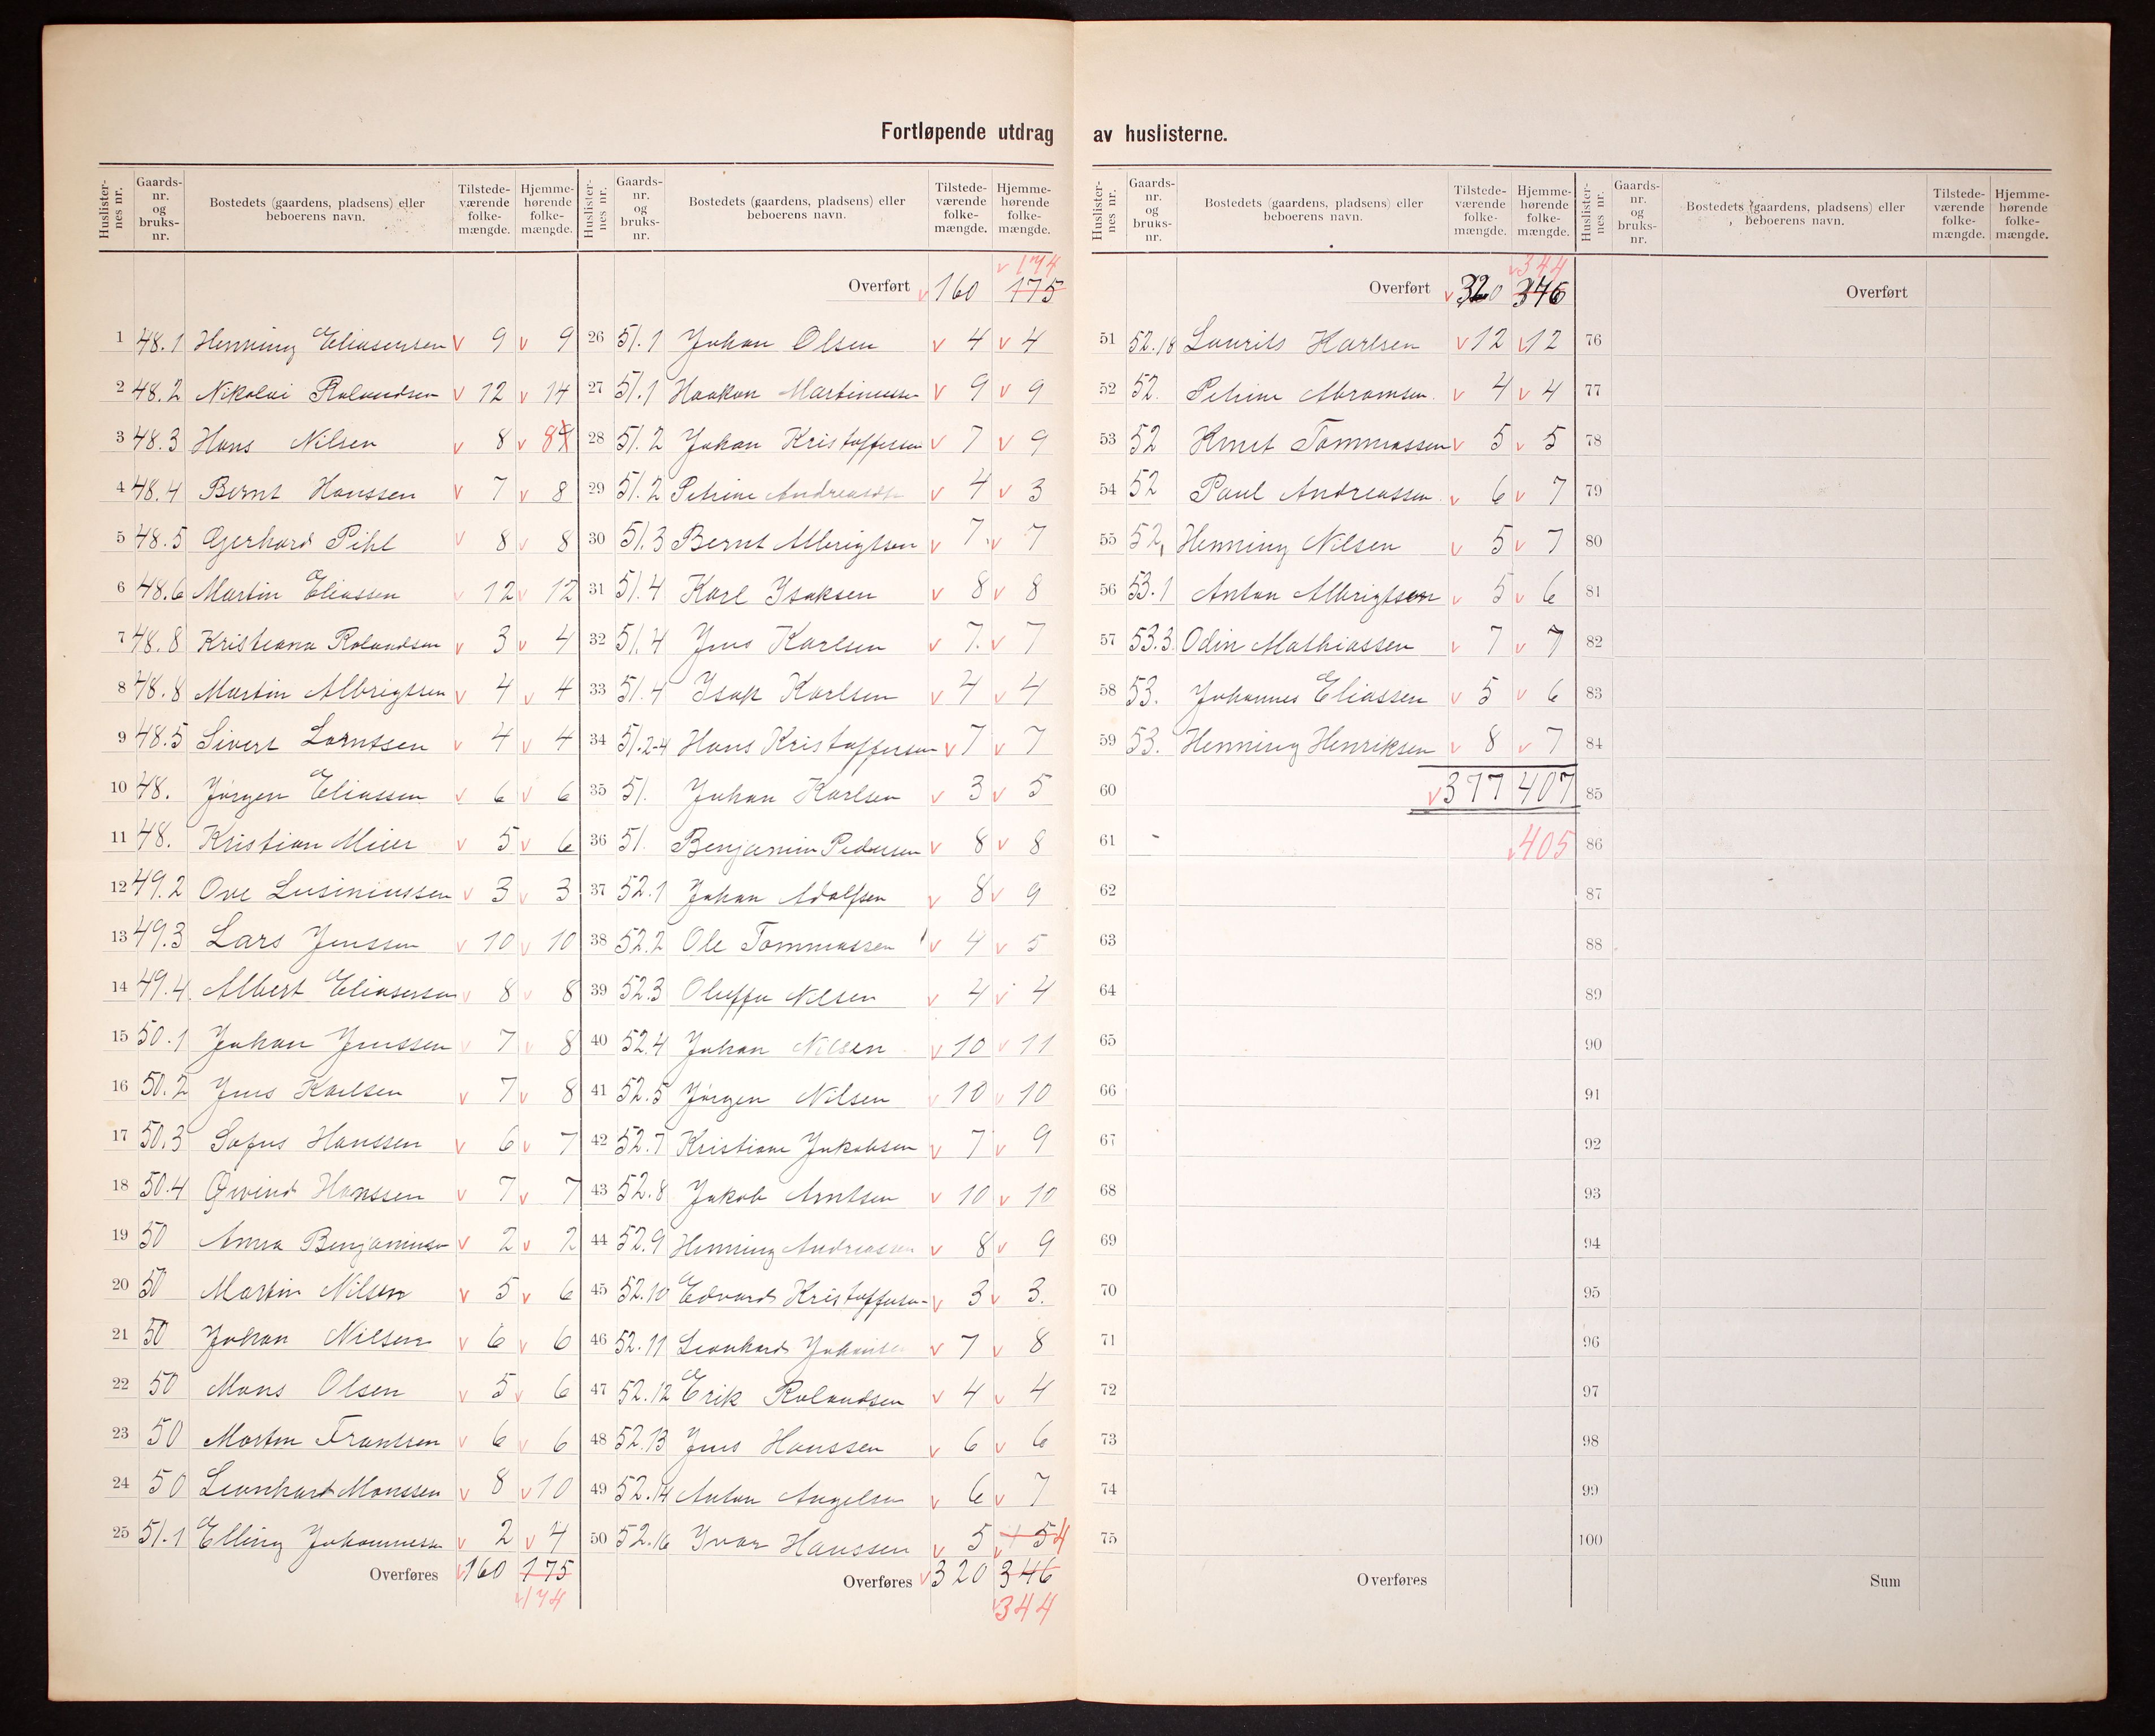 Fortløpende utdrag av huslisterne.
Huslister-nes nr. Gaards-nr. og bruks-nr. Bostedets (gaardens, pladsens) eller beboerens navn. Tilstede-værende folke-mængde. Hjemme-hørende folke-mængde.
1 48.1 Henning Eliasensen v 9 v 9
2 48.2 Nikolai Rolandsen v 12 v 14
3 48.3 Hans Nilsen v 8 v 8
4 48.4 Bernt Hanssen v 7 v 8
5 48.5 Gjerhard Pihl v 8 v 8
6 48.6 Martin Eliassen v 12 v 12
7 48.8 Kristiana Rolandsen v 3 v 4
8 48.8 Martin Albrigtsen v 4 v 4
9 48.5 Sivert Lorntsen v 4 v 4
10 48. Jørgen Eliassen v 6 v 6
11 48. Kristian Meier v 5 v 6
12 49.2 Ove Lusiniussen v 3 v 3
13 49.3 Lars Jenssen v 10 v 10
14 49.4 Albert Eliasensen v 8 v 8
15 50.1 Johan Jenssen v 7 v 8
16 50.2 Jens Karlsen v 7 v 8
17 50.3 Sofus Hanssen v 6 v 7
18 50.4 Øivind Hanssen v 7 v 7
19 50 Anna Benjaminsen v 2 v 2
20 50 Martin Nilsen v 5 v 6
21 50 Johan Nilsen v 6 v 6
22 50 Mons Olsen v 5 v 6
23 50 Morten Frantsen v 6 v 6
24 50 Leonhard Monssen v 8 v 10
25 51.1 Elling Johannessen v 2 v 4
Overføres v 160 175
v 174
Huslister-nes nr. Gaards-nr. og bruks-nr. Bostedets (gaardens, pladsens) eller beboerens navn. Tilstede-værende folke-mængde. Hjemme-hørende folke-mængde.
v 174
Overført v 160 175
26 51.1 Johan Olsen v 4 v 4
27 51.1 Haakon Martinussen v 9 v 9
28 51.2 Johan Kristoffersen v 7 v 9
29 51.2 Petrine Andreasdtr v 4 v 3
30 51.3 Bernt Albrigtsen v 7 v 7
31 51.4 Karl Isaksen v 8 v 8
32 51.4 Jens Karlsen v 7 v 7
33 51.4 Isak Karlsen v 4 v 4
34 51.2-4 Hans Kristoffersen v 7 v 7
35 51. Johan Karlsen v 3 v 5
36 51. Benjamin Pedersen v 8 v 8
37 52.1 Johan Adolfsen v 8 v 9
38 52.2 Ole Tommassen v 4 v 5
39 52.3 Oluffa Nilsen v 4 v 4
40 52.4 Johan Nilsen v 10 v 11
41 52.5 Jørgen Nilsen v 10 v 10
42 52.7 Kristiane Jakobsen v 7 v 9
43 52.8 Jakob Arntsen v 10 v 10
44 52.9 Henning Andreassen v 8 v 9
45 52.10 Edvard Kristoffersen v 3 v 3.
46 52.11 Leonhard v 7 v 8
47 52.12 Erik Rolandsen v 4 v 4
48 52.13 Jens Hanssen v 6 v 6
49 52.14 Anton Angelsen v 6 v 7
50 52.16 Ivar Hanssen v 5 v 5 4
Overføres v 320 346
v 344
Huslister-nes nr. Gaards-nr. og bruks-nr. Bostedets (gaardens, pladsens) eller beboerens navn. Tilstede-værende folke-mængde. Hjemme-hørende folke-mængde.
v 344
Overført v 320 346
51 52.18 Laurits Karlsen v 12 v 12
52 52. Petrine Abramsen. v 4 v 4
53 52 Knut Tommassen v 5 v 5
54 52 Paul Andreassen v 6 v 7
55 52, Henning Nilsen v 5 v 7
56 53.1 Anton Albrigtsen v 5 v 6
57 53.3 Odin Mathiassen v 7 v 7
58 53. Johannes Eliassen v 5 v 6
59 53. Henning Henriksen v 8 v 7
60 v 377 407
61 v 405
62
63
64
65
66
67
68
69
70
71
72
73
74
75
Overføres
Huslister-nes nr. Gaards-nr. og bruks-nr. Bostedets (gaardens, pladsens) eller beboerens navn. Tilstede-værende folke-mængde. Hjemme-hørende folke-mængde.
Overført
76
77
78
79
80
81
82
83
84
85
86
87
88
89
90
91
92
93
94
95
96
97
98
99
100
Sum